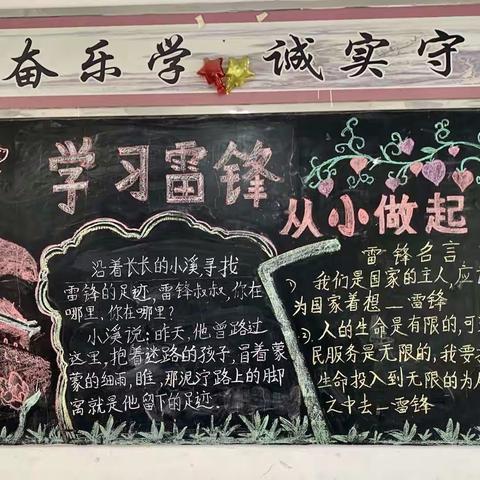 奋乐学 诚实守
学习雷锋
从小做起
沿着长长的小溪寻找
雷锋的足迹,雷锋叔叔,你在
哪里,你在哪里?
小溪说:昨天,他曾路过
这里,抱着迷路的孩子,冒着蒙
蒙的细雨,睢,那泥泞路上的脚
窝就是他留下的足迹.
雷锋名言
1)我们是国家的主人,应
为国家着想—雷锋
2).人的生命是有限的,可
民服务是无限的,我要
生命投入到无限的为
之中去—雷锋